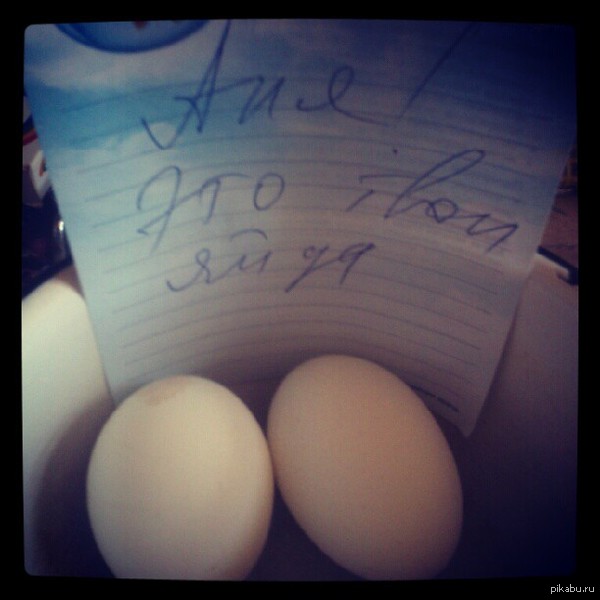 Аня!
Это твои
яйца
pikabu.ru